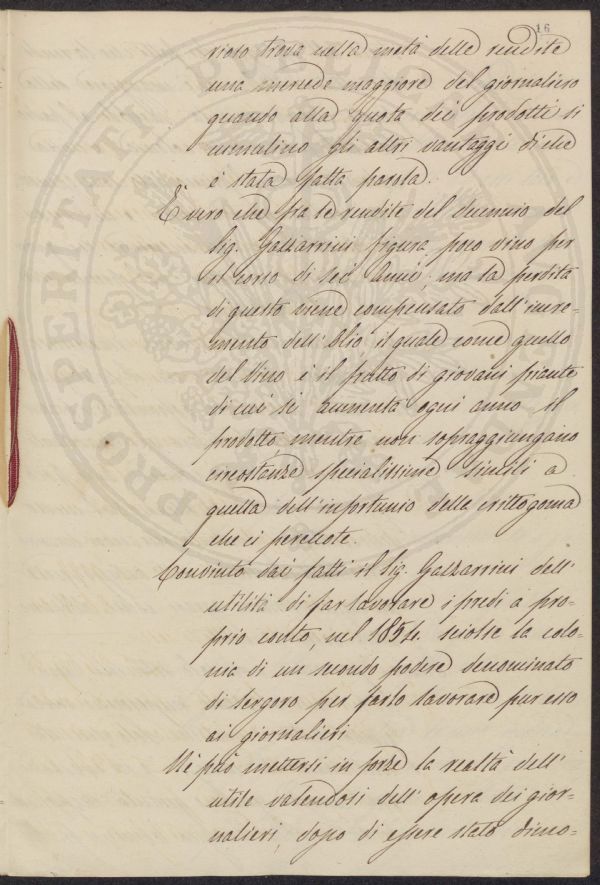 16
rioso trova nella metà delle rendite
una mercede maggiore del giornaliero
quando alla quota dei prodotti si
cumulino gli altri vantaggi di che
è stata fatta parola.
È vero che fra le rendite del decennio del
Sig. Gazzarrini figura poco vino per
il corso di sei Anni; ma la perdita
di questo viene compensato dall'incre-
mento dell'Olio il quale come quello
del Vino è il frutto di giovani piante
di cui si aumenta ogni anno il
prodotto, mentre non sopraggiungano
circostanze specialissime simili a
quella dell'infortunio della crittogama
che ci percuote.
Convinto dai fatti il Sig. Gazzarrini dell'
utilità di far lavorare i predi a pro-
prio conto, nel 1854. sciolse la colo-
nia di un secondo podere denominato
di Sergoro per farlo lavorare pur esso
ai giornalieri
Nè può mettersi in forse la realtà dell'
utile valendosi dell'opera dei gior-
nalieri, dopo di essere stato dimo-
PROSPERITATI